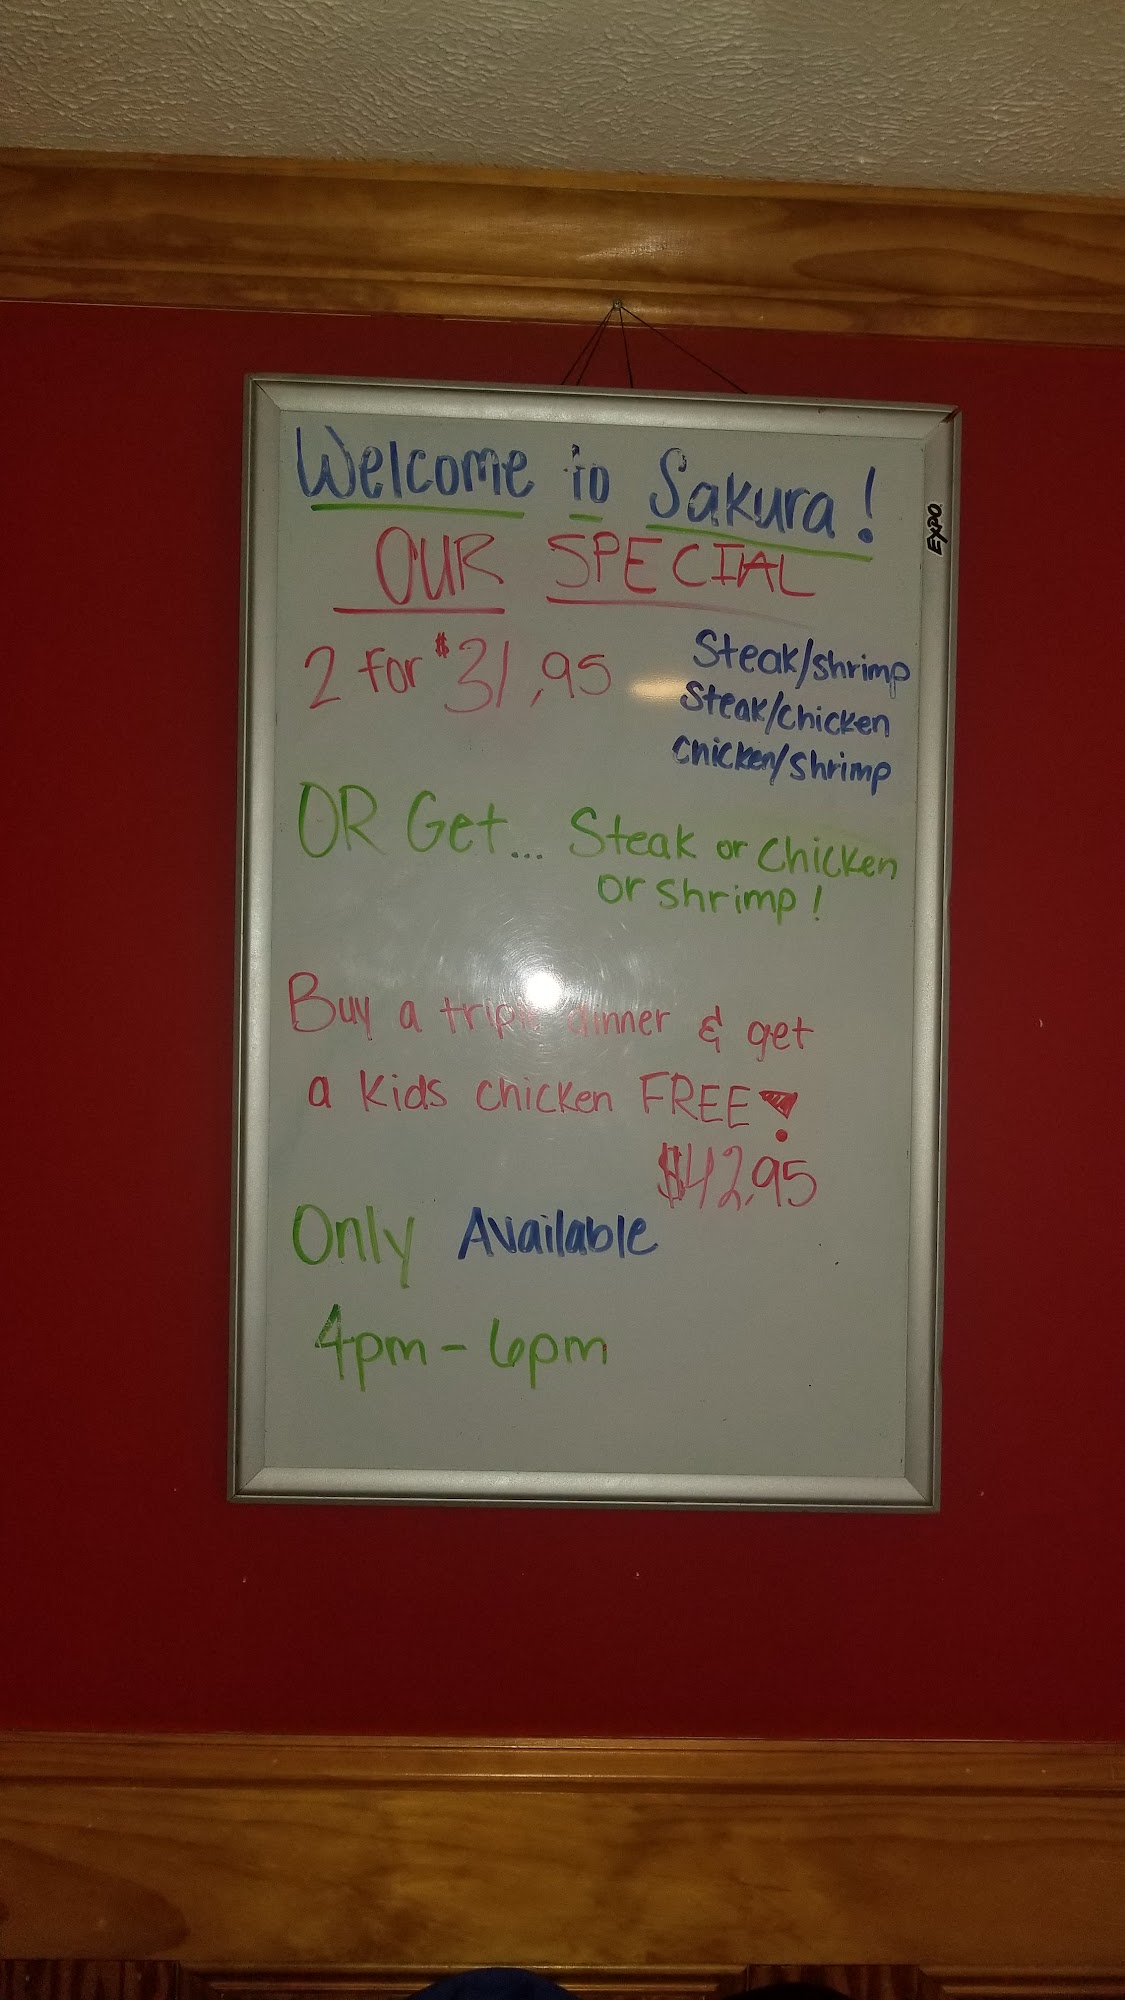 Welcome to Sakura!
EXPO
OUR SPECIAL
2 for $31.95
Steak/shrimp
Steak/chicken
chicken/shrimp
OR Get... Steak or chicken
or shrimp!
Buy a triple dinner & get
a kids chicken FREE!
$42.95
Only Available
4pm - 6pm